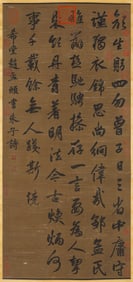 顏生躬四勿曾子日三省中庸首
謹獨衣錦思尚絅偉哉鄒孟氏
雄辯極馳騁操存一言要為爾挈
裘領丹青著明法今古垂煥炳何
事千載餘無人踐斯境
書朱子詩